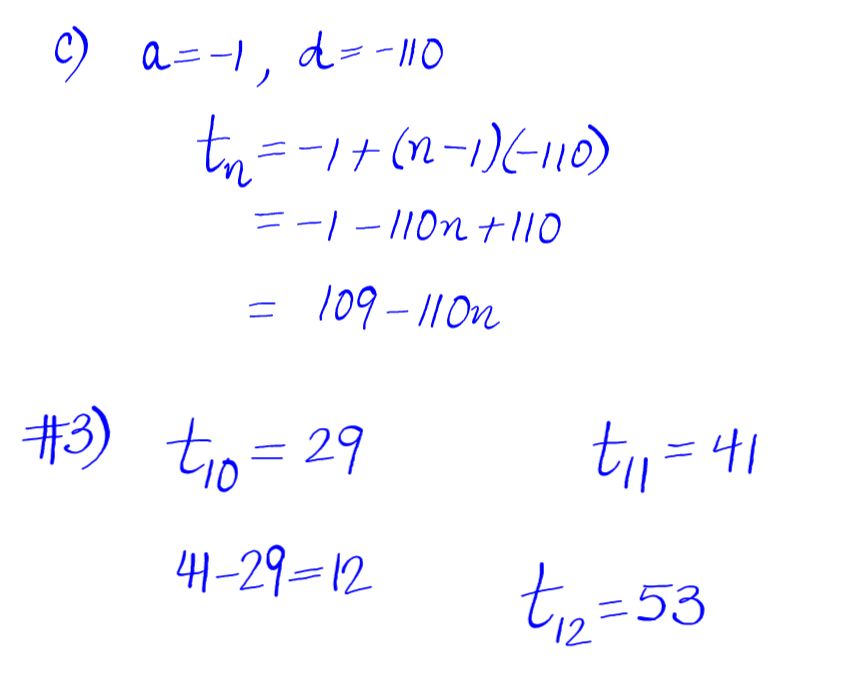 c) a=-1, d=-110
tₙ=-1+(n-1)(-110)
=-1-110n+110
= 109-110n
#3) t₁₀=29 t₁₁=41
41-29=12
t₁₂=53